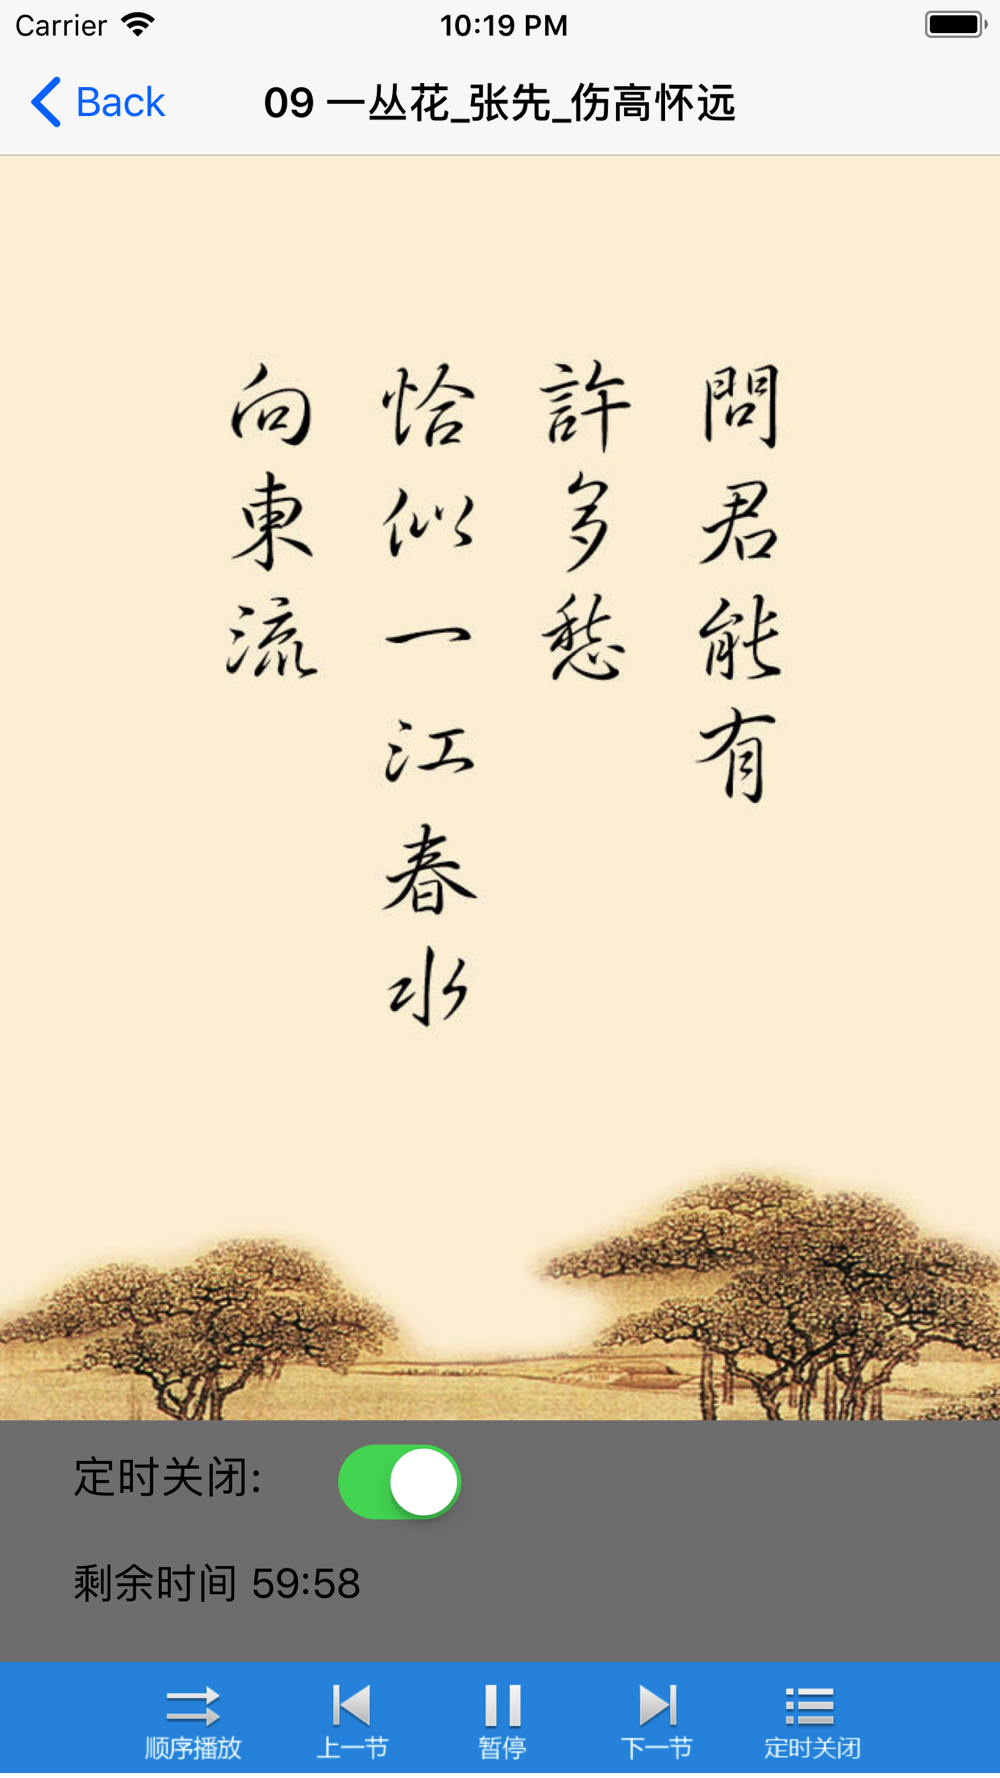 Carrier 10:19 PM
Back 09 一丛花_张先_伤高怀远
問君能有
許多愁
恰似一江春水
向東流
定时关闭:
剩余时间 59:58
顺序播放 上一节 暂停 下一节 定时关闭